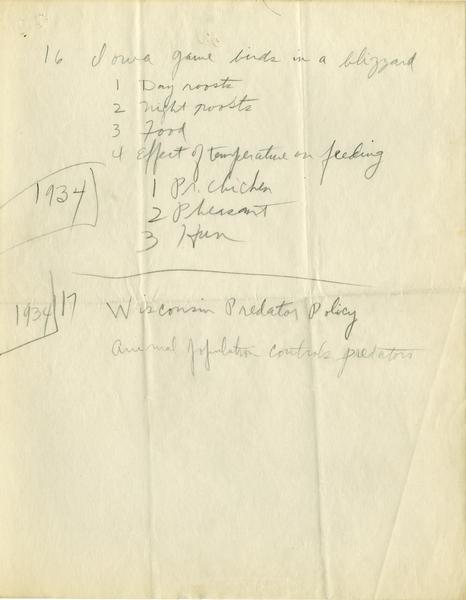 16 Iowa game birds in a blizzard
1 Day roosts
2 Night roosts
3 Food
4 Effect of temperature on feeding
1934
1 Pr. chicken
2 Pheasant
3 Hun
1934 17 Wisconsin Predator Policy
Animal population controls predators